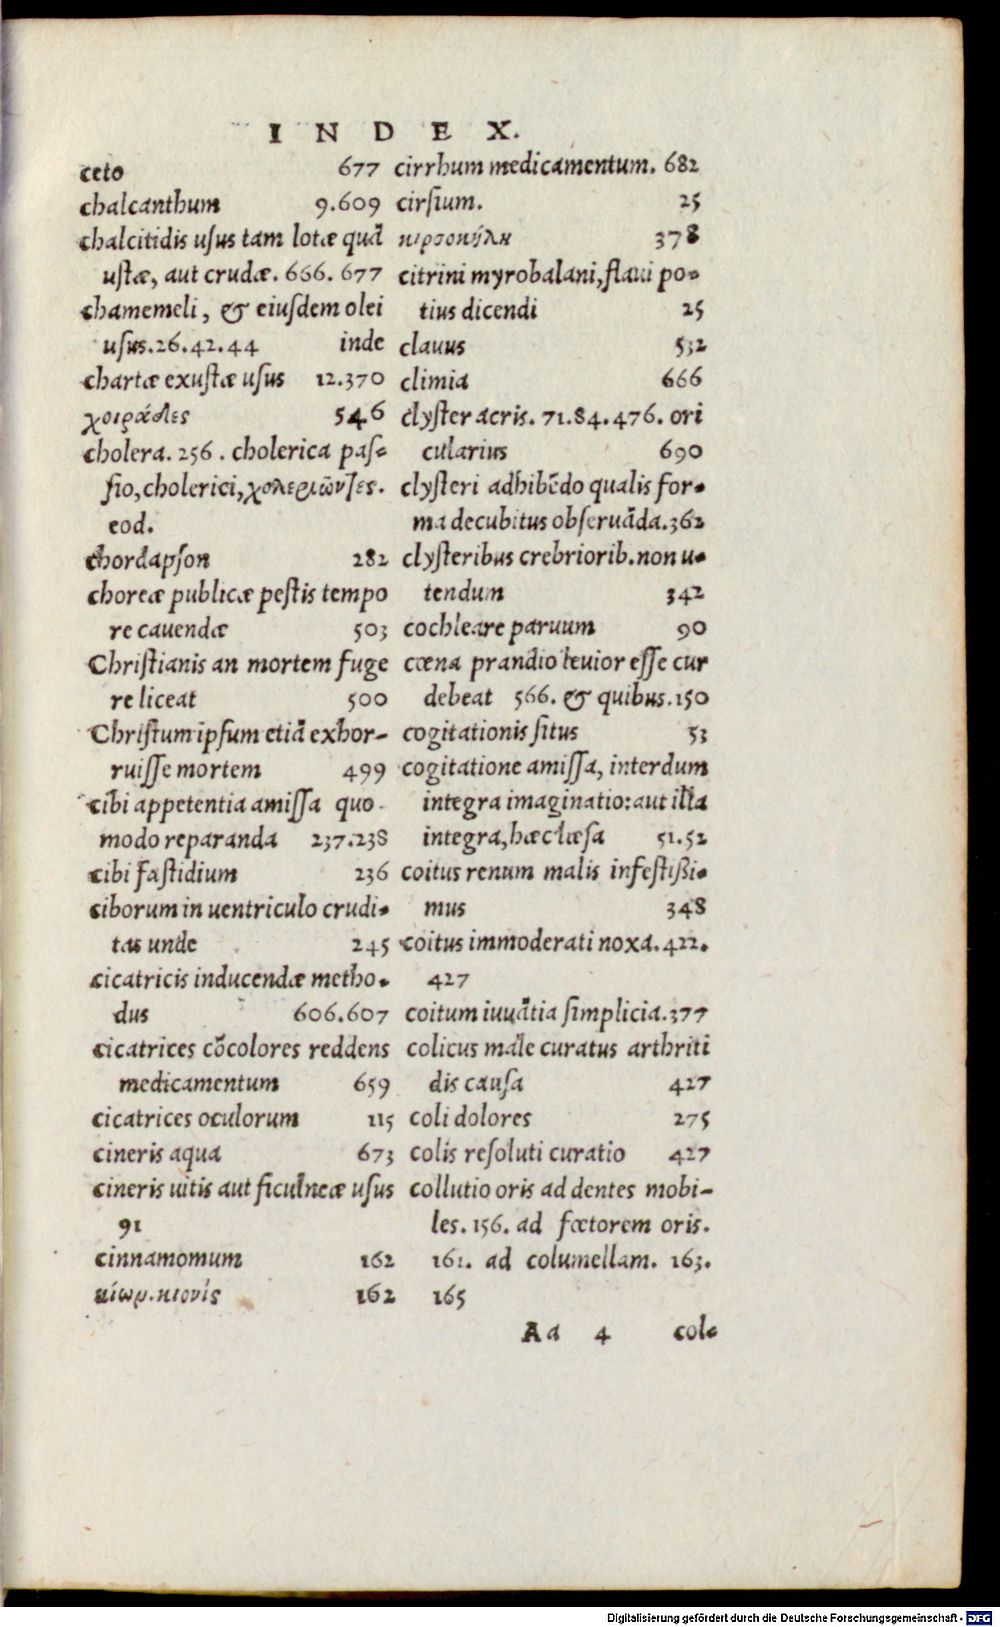 INDEX.
ceto 677
chalcanthum 9.609
chalcitidis uſus tam lotæ quã
uſtæ, aut crudæ. 666. 677
chamemeli, & eiuſdem olei
uſus.26.42.44 inde
chartæ exuſtæ uſus 12.370
χοιράδες 546
cholera. 256. cholerica paſ-
ſio, cholerici, χολεριῶντες.
eod.
chordapſon 282
choreæ publicæ peſtis tempo
re cauendæ 503
Chriſtianis an mortem fuge
re liceat 500
Chriſtum ipſum etiã exhor-
ruiſſe mortem 499
cibi appetentia amiſſa quo
modo reparanda 237.238
cibi faſtidium 236
ciborum in uentriculo crudi-
tas unde 245
cicatricis inducendæ metho-
dus 606.607
cicatrices cõcolores reddens
medicamentum 659
cicatrices oculorum 115
cineris aqua 673
cineris uitis aut ficulneæ uſus
91
cinnamomum 162
κίων.κιονὶς 162
cirrhum medicamentum. 682
cirſium. 25
κιρσοκήλη 378
citrini myrobalani, flaui po-
tius dicendi 25
clauus 532
climia 666
clyſter acris. 71.84.476. ori
cularius 690
clyſteri adhibẽdo qualis for-
ma decubitus obſeruãda.362
clyſteribus crebriorib. non u-
tendum 342
cochleare paruum 90
cœna prandio leuior eſſe cur
debeat 566. & quibus.150
cogitationis ſitus 53
cogitatione amiſſa, interdum
integra imaginatio: aut illa
integra, hæc læſa 51.52
coitus renum malis infeſtißi-
mus 348
coitus immoderati noxa.422.
427
coitum iuuãtia ſimplicia.377
colicus male curatus arthriti
dis cauſa 427
coli dolores 275
colis reſoluti curatio 427
collutio oris ad dentes mobi-
les. 156. ad fœtorem oris.
161. ad columellam. 163.
165
Aa 4 col-
Digitalisierung gefördert durch die Deutsche Forschungsgemeinschaft - DFG